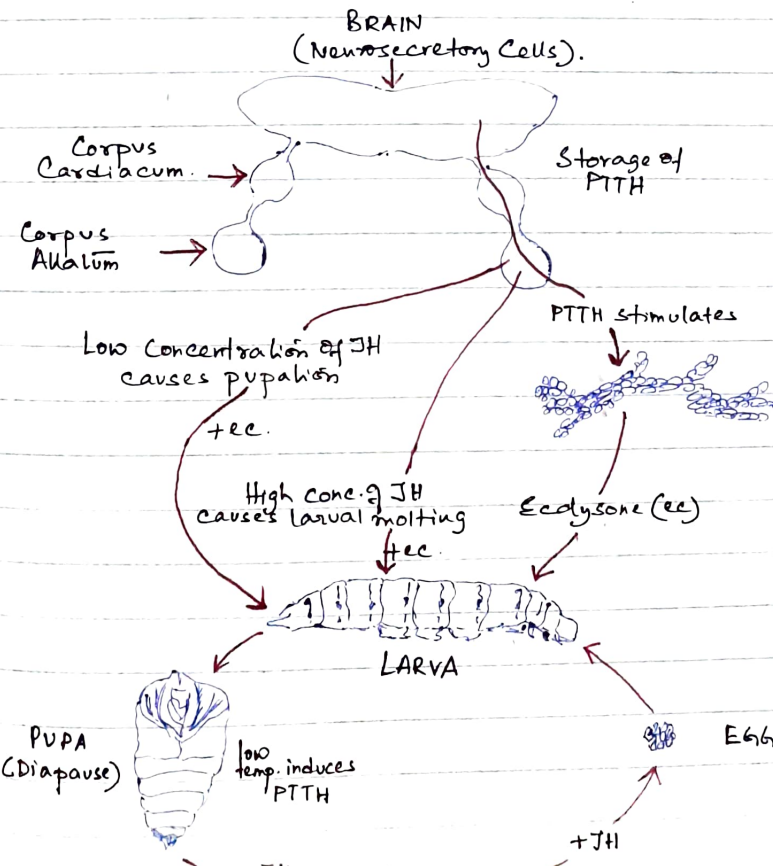 BRAIN
(Neurosecretory Cells).
Corpus
Cardiacum.
Storage of
PTTH
Corpus
Allatum
PTTH stimulates
Low Concentration of JH
causes pupation
+ec.
High conc. of JH
causes larval molting
+ec.
Ecdysone (ec)
LARVA
PUPA
(Diapause)
low
temp. induces
PTTH
EGG
+JH